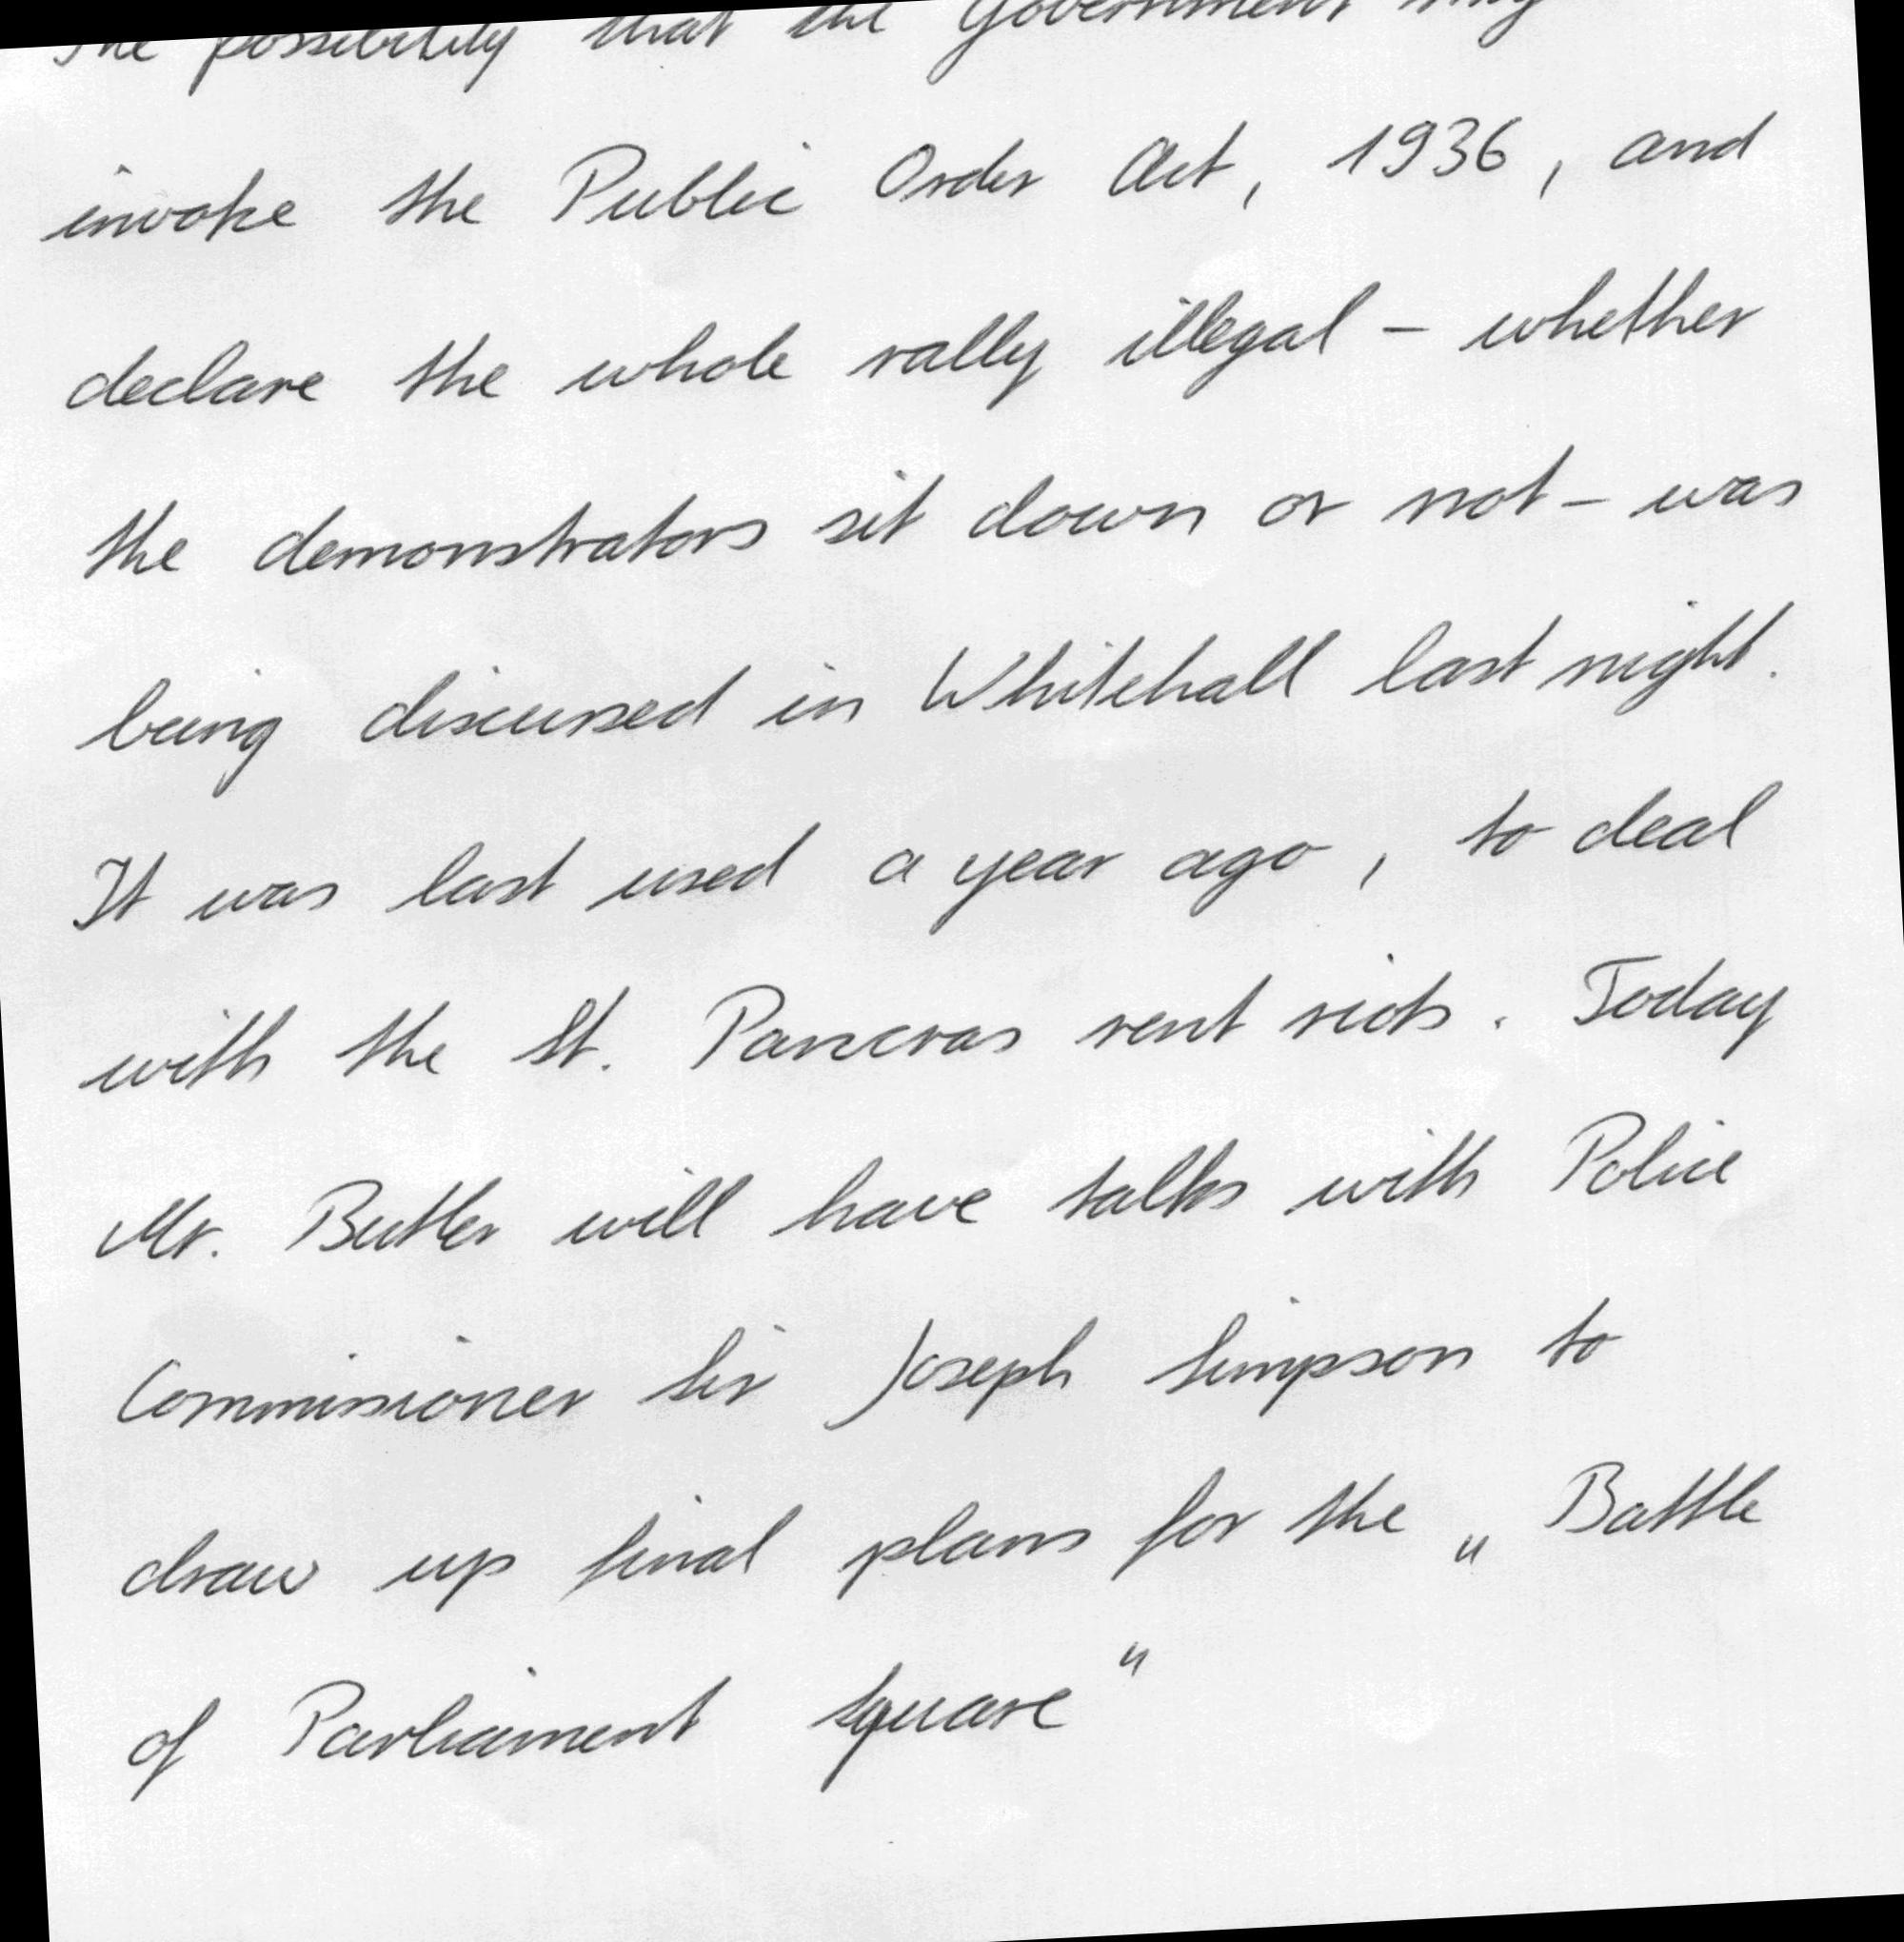 The possibility that the Government may
invoke the Public Order Act, 1936, and
declare the whole rally illegal - whether
the demonstrators sit down or not - was
being discussed in Whitehall last night.
It was last used a year ago, to deal
with the St. Pancras rent riots. Today
Mr. Butler will have talks with Police
Commissioner Sir Joseph Simpson to
draw up final plans for the „Battle
of Parliament Square"